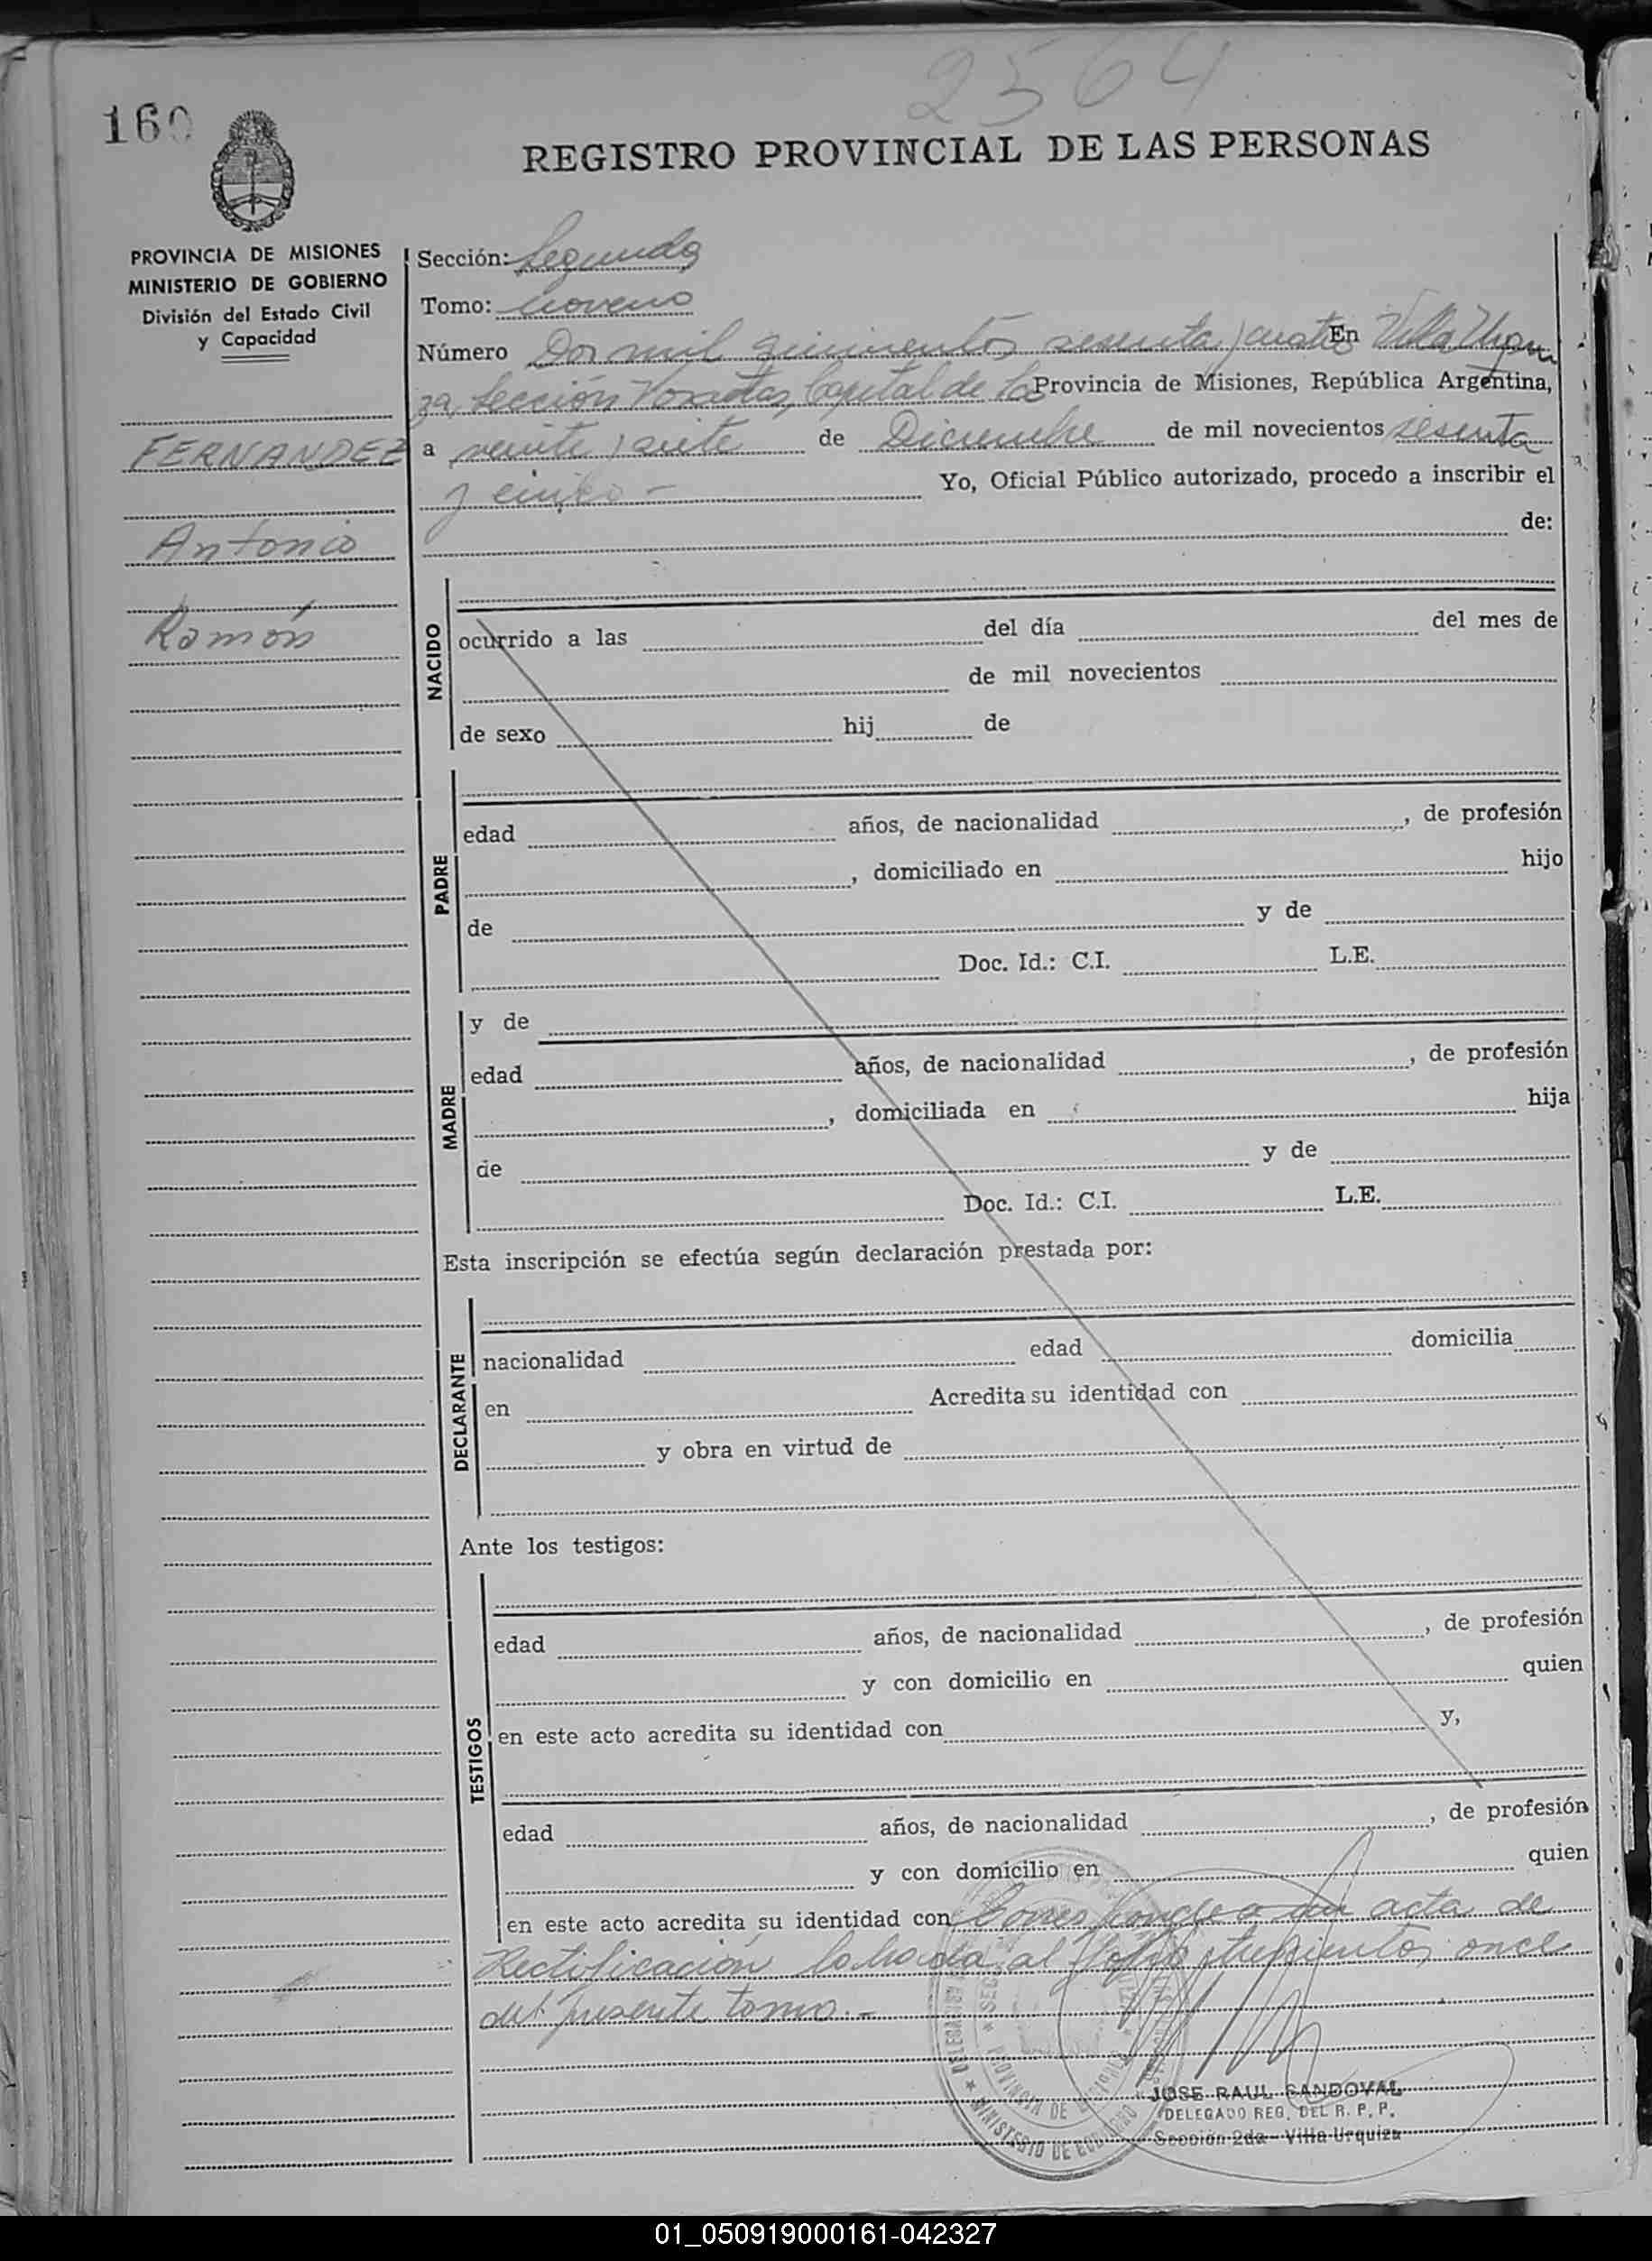 2564
160
REGISTRO PROVINCIAL DE LAS PERSONAS
PROVINCIA DE MISIONES
MINISTERIO DE GOBIERNO
División del Estado Civil
y Capacidad
FERNANDEZ
Antonio
Ramón
Sección: Segunda
Tomo: noveno
Número Dos mil quinientos sesenta y cuatro En Villa Urqui
za, Sección Posadas, Capital de la Provincia de Misiones, República Argentina,
a veinte y siete de Diciembre de mil novecientos sesenta
y cinco - Yo, Oficial Público autorizado, procedo a inscribir el
de:
NACIDO
ocurrido a las del día del mes de
de mil novecientos
de sexo hij de
PADRE
edad años, de nacionalidad , de profesión
, domiciliado en hijo
de y de
Doc. Id.: C.I. L.E.
MADRE
y de
edad años, de nacionalidad , de profesión
, domiciliada en hija
de y de
Doc. Id.: C.I. L.E.
Esta inscripción se efectúa según declaración prestada por:
DECLARANTE
nacionalidad edad domicilia
en Acredita su identidad con
y obra en virtud de
Ante los testigos:
TESTIGOS
edad años, de nacionalidad , de profesión
y con domicilio en quien
en este acto acredita su identidad con y,
edad años, de nacionalidad , de profesión
y con domicilio en quien
en este acto acredita su identidad con Corresponde a un acta de
Rectificación labrada al folio trescientos once
del presente tomo.-
PROVINCIA DE MISIONES
MINISTERIO DE GOBIERNO
JOSE RAUL SANDOVAL
DELEGADO REG. DEL R. P. P.
Sección 2da - Villa Urquiza
01_050919000161-042327